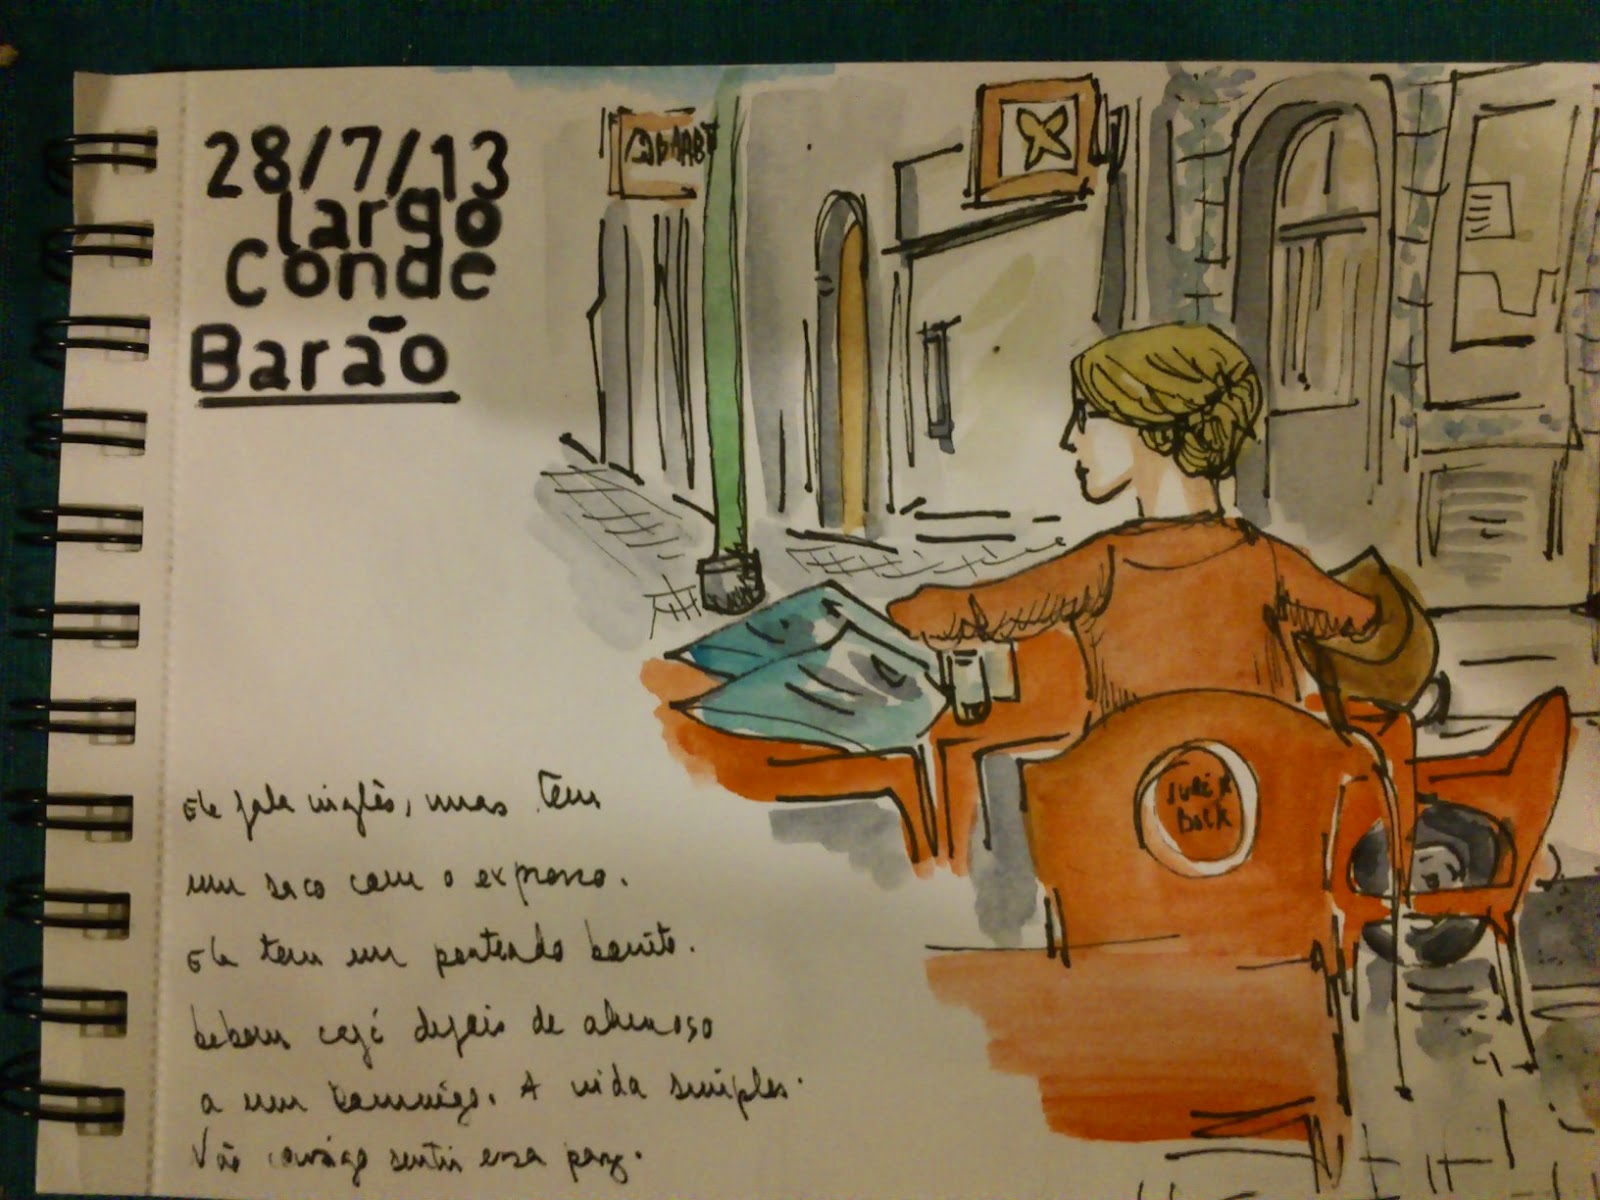 28/7/13
largo
Conde
Barão
Super
Bock
Ele fala inglês, mas tem
um saco com o expresso.
Ela tem um penteado bonito.
bebem café depois de almoço
a um Domingo. A vida simples.
Não consigo sentir essa paz.